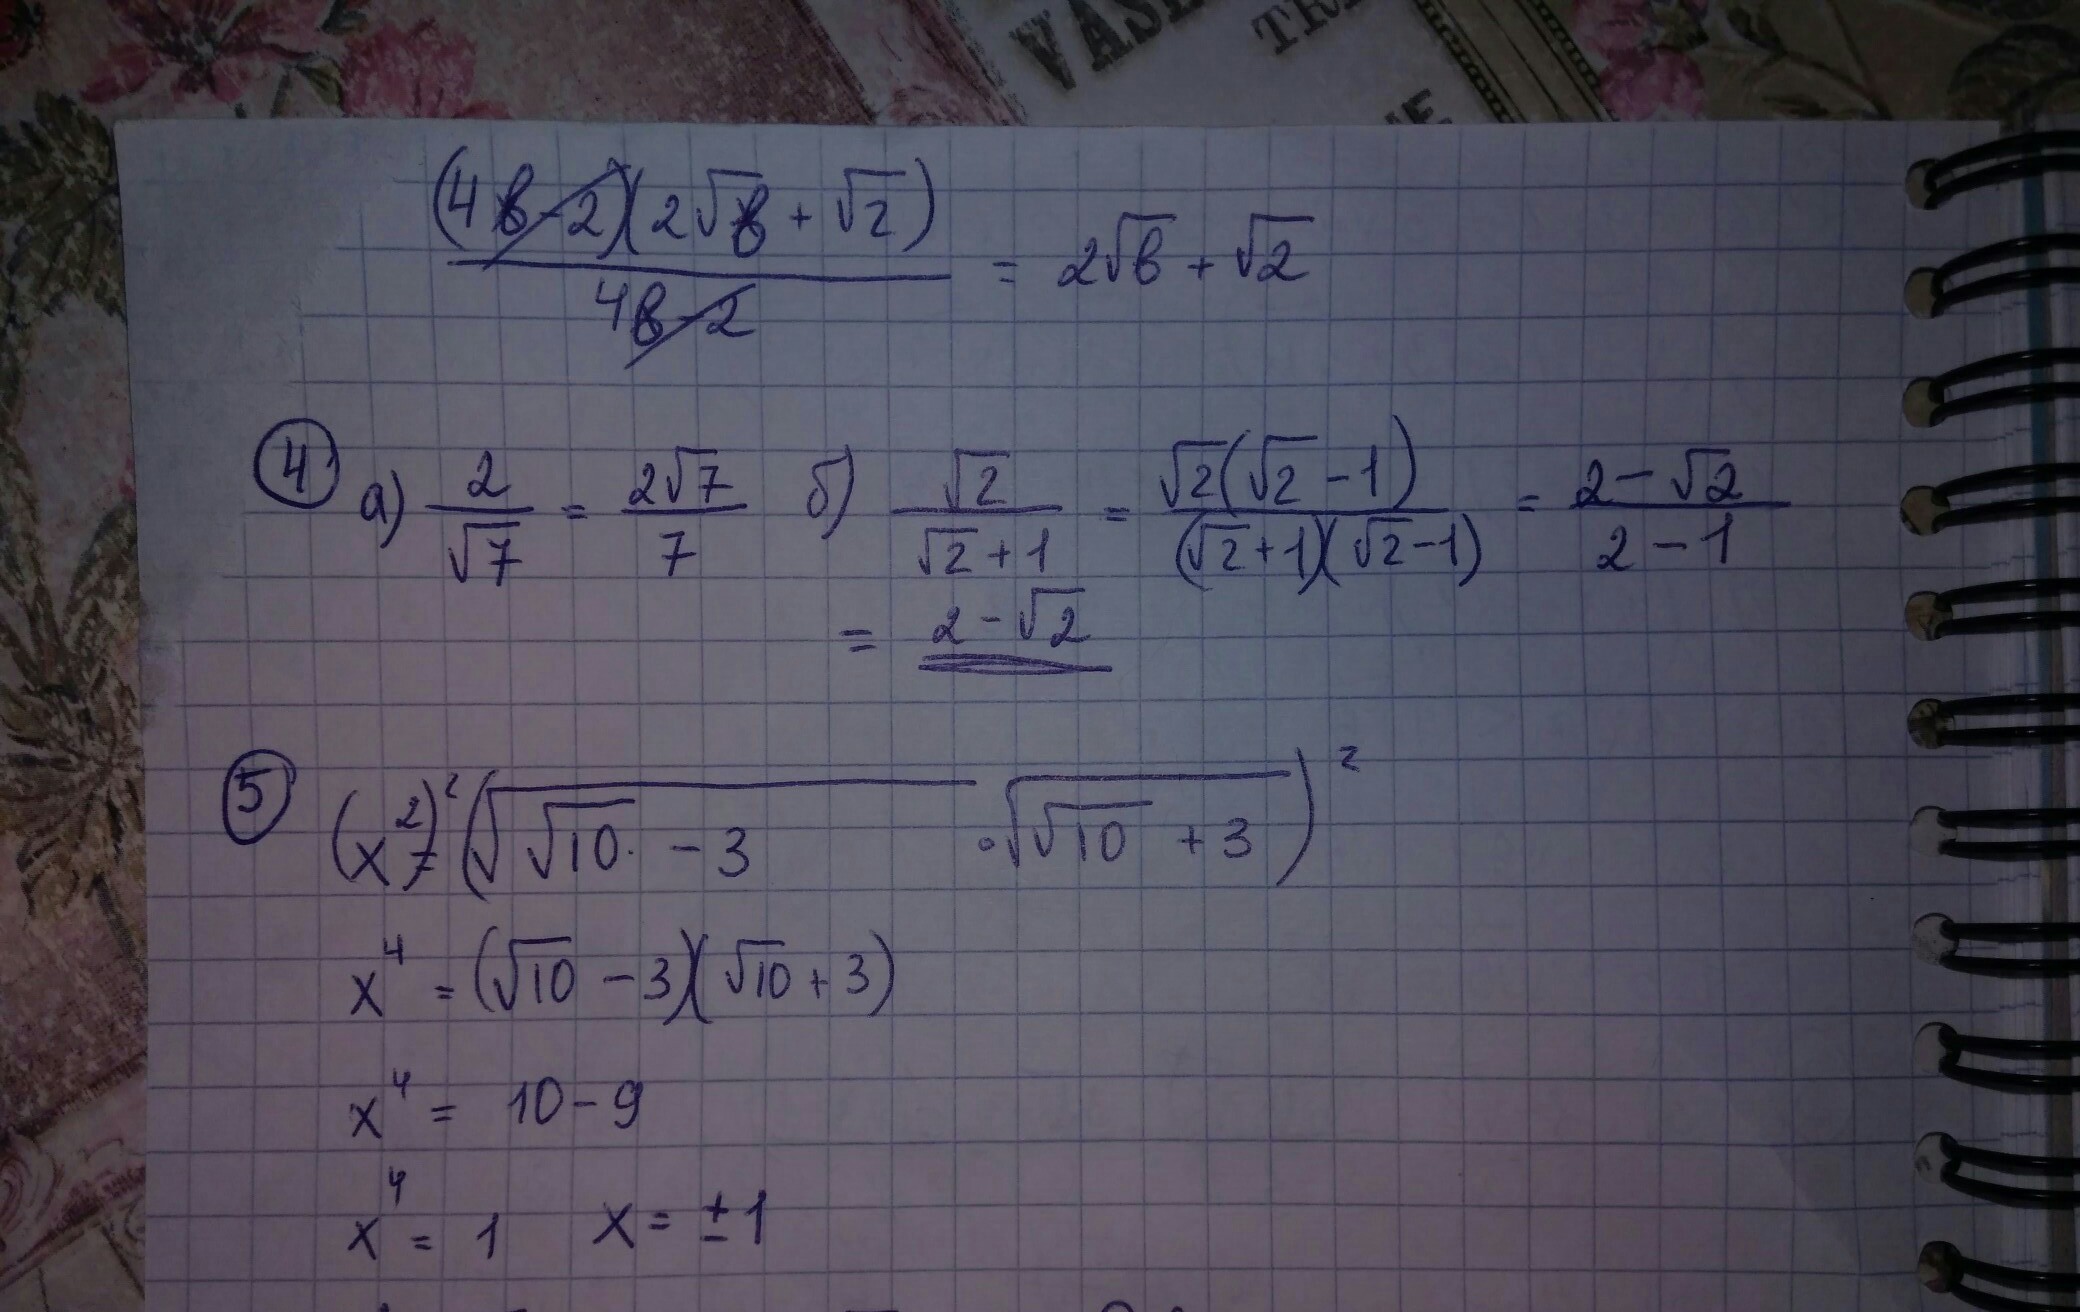 TR
(4в-2)(2√в + √2)
———————— = 2√в + √2
4в-2
④ а) 2/√7 = 2√7/7 б) √2/(√2+1) = √2(√2-1)/((√2+1)(√2-1)) = (2-√2)/(2-1)
= 2-√2
⑤ (x²)² = (√(√10 - 3) · √(√10 + 3))²
x⁴ = (√10 - 3)(√10 + 3)
x⁴ = 10-9
x⁴ = 1 x = ±1